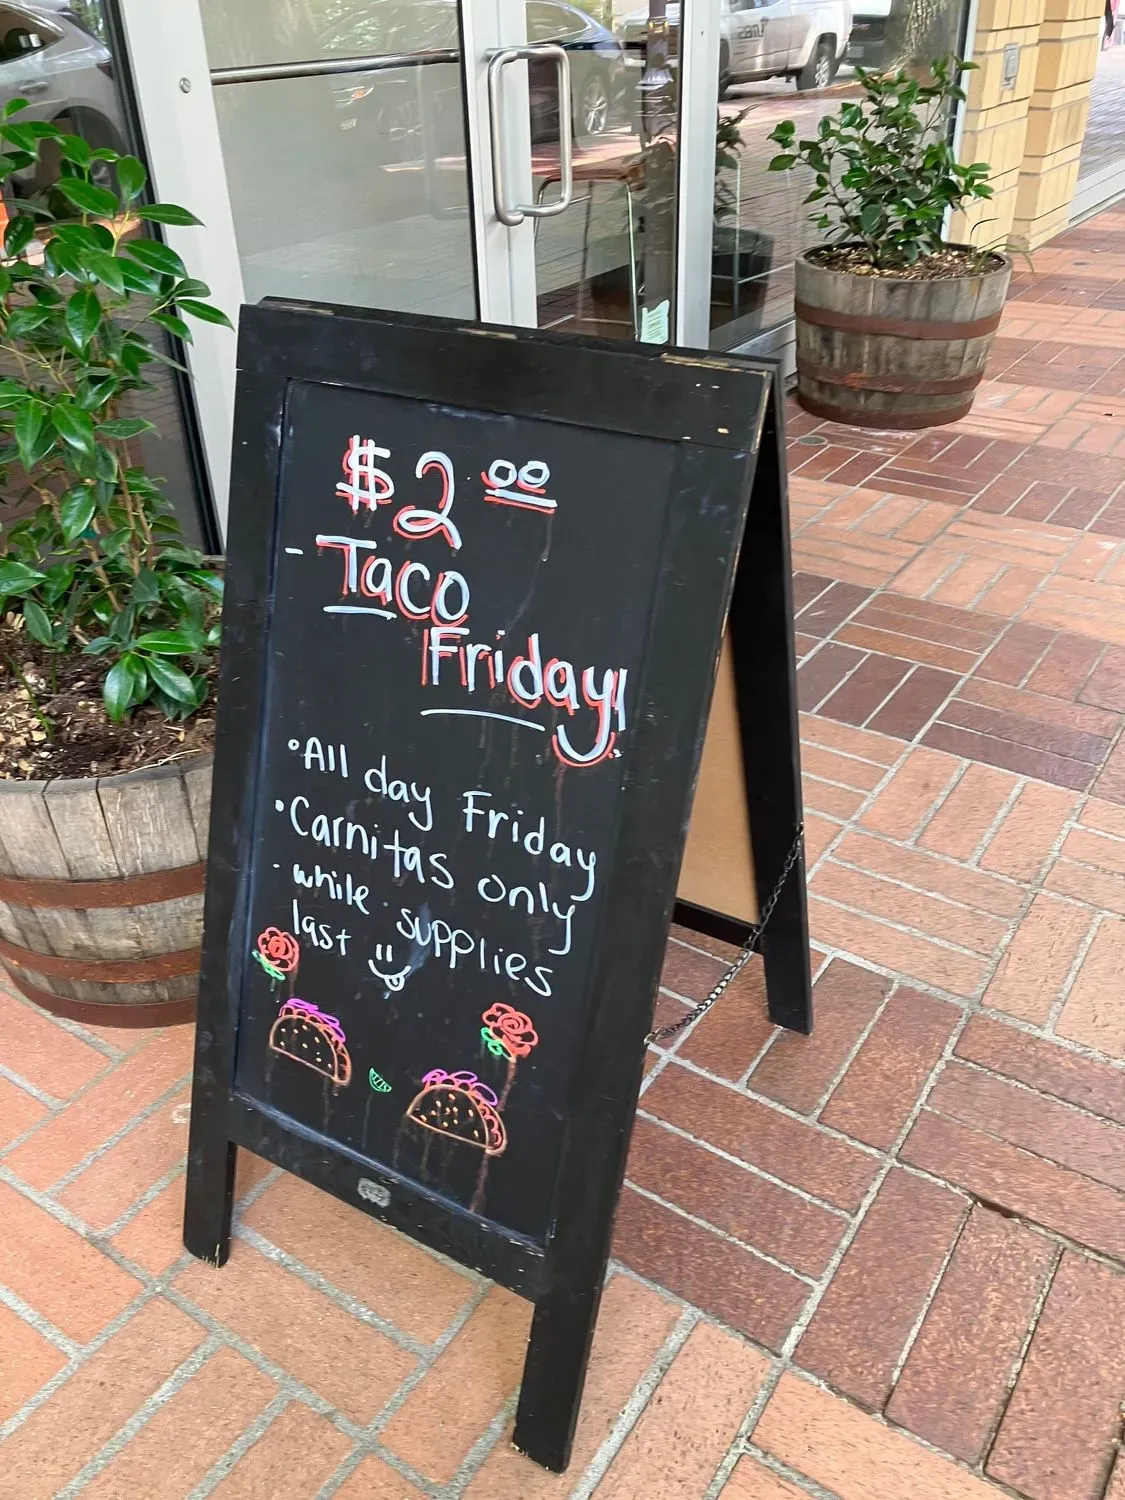 $2 00
- Taco
Friday!
• All day Friday
• Carnitas only
- while supplies
last